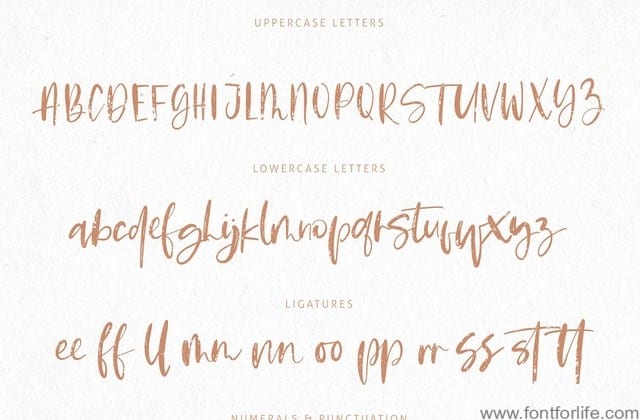 UPPERCASE LETTERS
ABCDEFGHIJLMNOPQRSTUVWXYZ
LOWERCASE LETTERS
abcdefghijklmnopqrstuvwxyz
LIGATURES
ee ff ll mm nn oo pp rr ss st tt
NUMERALS & PUNCTUATION
www.fontforlife.com